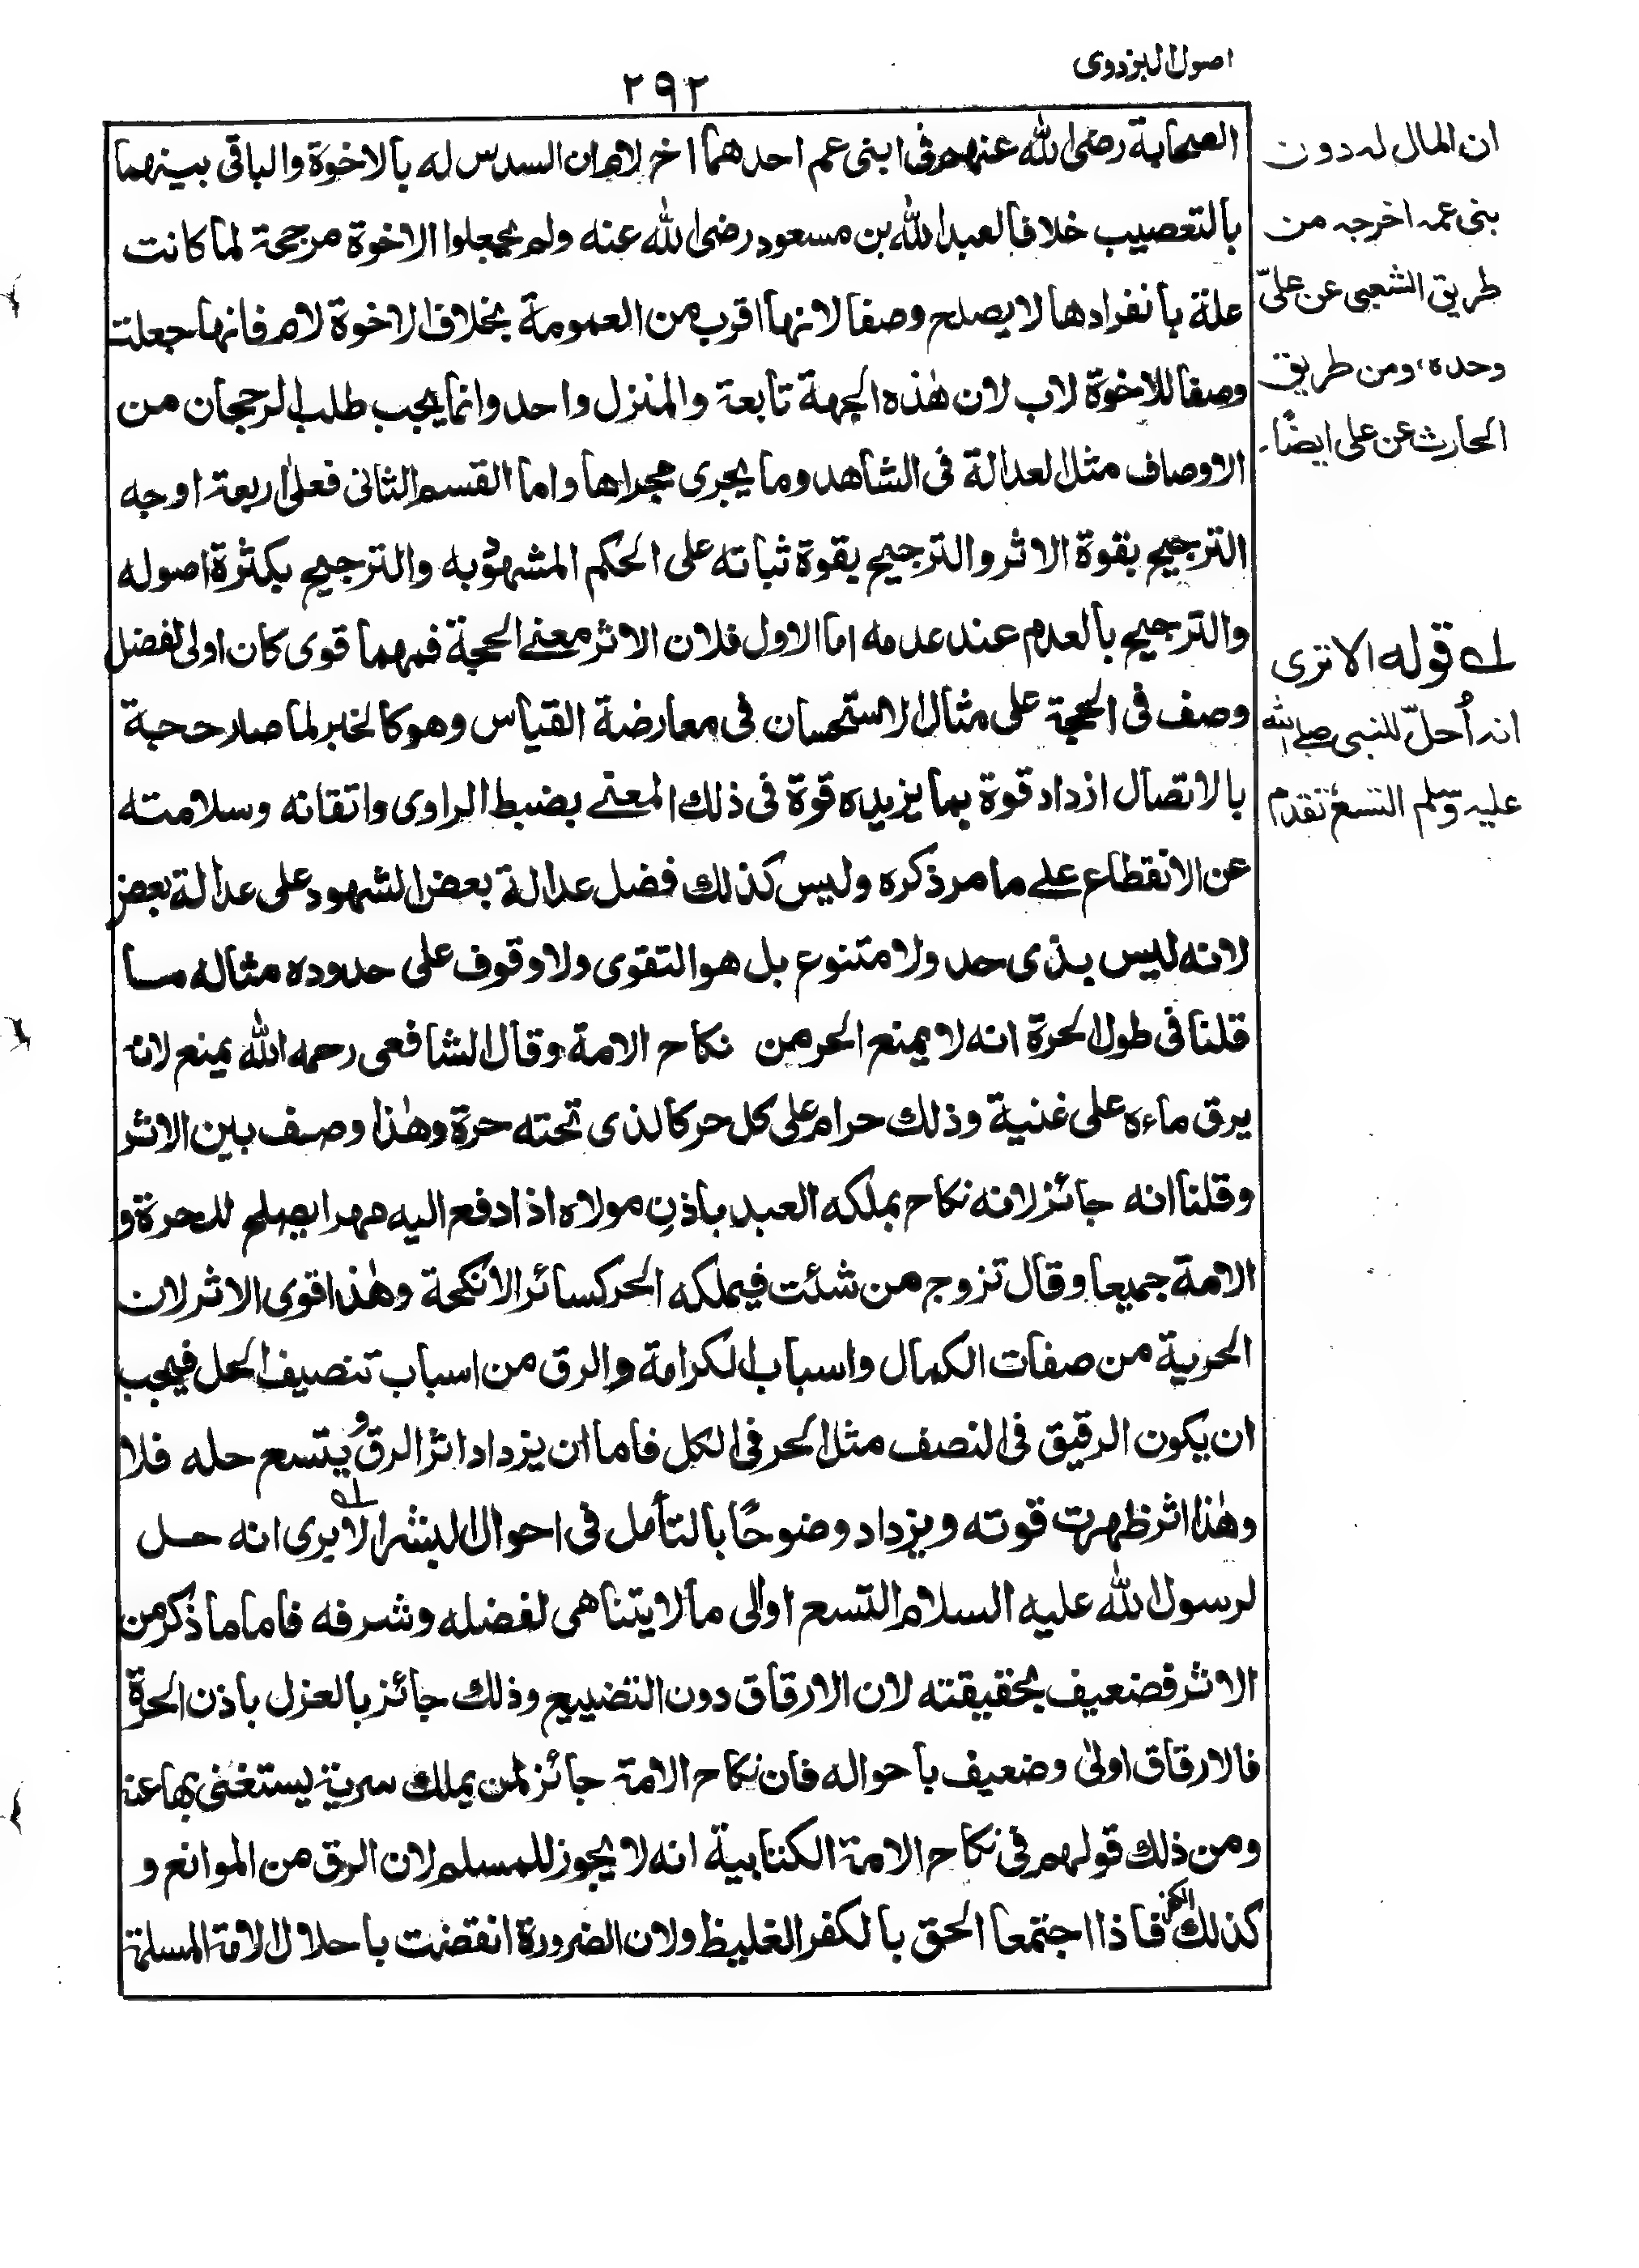 اصول البزدوی
۲۹۲
الصحابة رضی الله عنهم فی ابنی عم احدهما اخ لام ان السدس له بالاخوة والباقی بینهما
بالتعصیب خلافا لعبد الله بن مسعود رضی الله عنه ولم یجعلوا الاخوة مرجحة لما کانت
علة بانفرادها لا یصلح وصفا لانها اقرب من العمومة بخلاف الاخوة لام فانها جعلت
وصفا للاخوة لاب لان هٰذه الجهة تابعة والمنزل واحد وانما یجب طلب الرجحان من
الاوصاف مثل العدالة فی الشاهد وما یجری مجراها واما القسم الثانی فعلیٰ اربعة اوجه
الترجیح بقوة الاثر والترجیح بقوة ثباته علی الحکم المشهود به والترجیح بکثرة اصوله
والترجیح بالعدم عند عدمه اما الاول فلان الاثر معنے الحجة فمهما قوی کان اولی لفضل
وصف فی الحجة علی مثال الاستحسان فی معارضة القیاس وهو کالخبر لما صار حجة
بالاتصال ازداد قوة بما یزیده قوة فی ذلك المعنے بضبط الراوی واتقانه وسلامته
عن الانقطاع علے ما مر ذکره ولیس کذلك فضل عدالة بعض الشهود علی عدالة بعض
لانه لیس بذی حد ولا متنوع بل هو التقوی ولا وقوف علی حدوده مثاله ما
قلنا فی طول الحرة انه لا یمنع الحر من نکاح الامة وقال الشافعی رحمه الله یمنع لانه
یرق ماءه علی غنیة وذلك حرام علی کل حر کالذی تحته حرة وهٰذا وصف بین الاثر
وقلنا انه جائز لانه نکاح یملکه العبد باذن مولاه اذا دفع الیه مهرا یصلح للحرة و
الامة جمیعا وقال تزوج من شئت فیملکه الحر کسائر الانکحة وهٰذا اقوی الاثر لان
الحریة من صفات الکمال واسباب الکرامة والرق من اسباب تنصیف الحل فیجب
ان یکون الرقیق فی النصف مثل الحر فی الکل فاما ان یزداد اثر الرق ویتسع حله فلا
وهٰذا اثر ظهرت قوته ویزداد وضوحًا بالتأمل فی احوال البشر الا یری انه حل
لرسول الله علیه السلام التسع اوالی ما لا یتناهی لفضله وشرفه فاما ما ذکر من
الاثر فضعیف بحقیقته لان الارقاق دون التضییع وذلك جائز بالعزل باذن الحرة
فالارقاق اولیٰ وضعیف باحواله فان نکاح الامة جائز لمن یملك سریة یستغنی بها عنه
ومن ذلك قولهم فی نکاح الامة الکتابیة انه لا یجوز للمسلم لان الرق من الموانع و
کذلك الکفر فاذا اجتمعا الحق بالکفر الغلیظ ولان الضرورة انقضت باحلال الامة المسلمة
ان المال له دون
بنی عمه اخرجه من
طریق الشعبی عن علیّ
وحده، ومن طریق
الحارث عن علی ایضًا۔
لـه قوله الا تری
انه اُحلّ للنبی صلے الله
علیه وسلم التسع تقدم